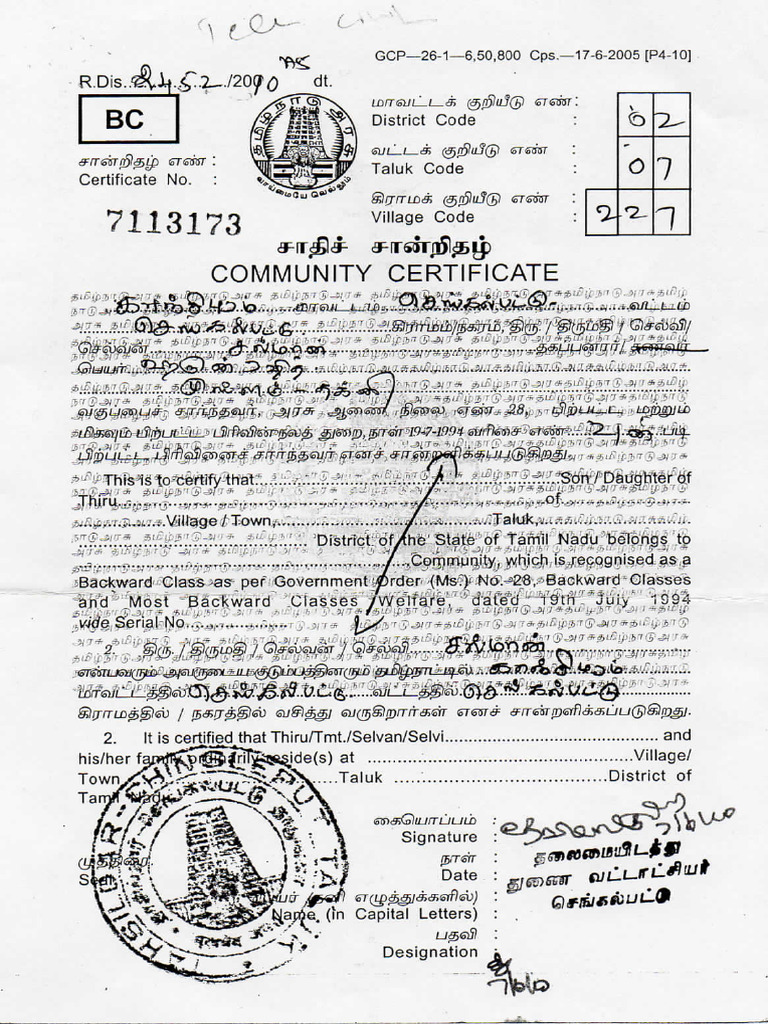 GCP—26-1—6,50,800 Cps.—17-6-2005 [P4-10]
R.Dis. 2452 /2010 dt.
BC
தமிழ்நாடு அரசு
வாய்மையே வெல்லும்
சான்றிதழ் எண் :
Certificate No. :
7113173
மாவட்டக் குறியீடு எண் :
District Code : 02
வட்டக் குறியீடு எண்
Taluk Code : 07
கிராமக் குறியீடு எண் :
Village Code : 227
சாதிச் சான்றிதழ்
COMMUNITY CERTIFICATE
காஞ்சிபுரம் மாவட்டம் செங்கல்பட்டு வட்டம்
செங்கல்பட்டு கிராமம்/நகரம், திரு / திருமதி / செல்வி/
செல்வன் சல்மான் தகப்பனார்/கணவர்
பெயர்
வகுப்பைச் சார்ந்தவர், அரசு ஆணை நிலை எண் 28, பிற்பட்ட மற்றும்
மிகவும் பிற்பட்ட பிரிவின் நலத் துறை, நாள் 19-7-1994 வரிசை எண் படி
பிற்பட்ட பிரிவினைச் சார்ந்தவர் எனச் சான்றளிக்கப்படுகிறது.
This is to certify that Son / Daughter of
Thiru of
Village / Town, Taluk
District of the State of Tamil Nadu belongs to
Community, which is recognised as a
Backward Class as per Government Order (Ms.) No. 28, Backward Classes
and Most Backward Classes Welfare, dated 19th July 1994
vide Serial No.
2. திரு / திருமதி / செல்வன் / செல்வி சல்மான்
என்பவரும் அவருடைய குடும்பத்தினரும் தமிழ்நாட்டில் காஞ்சிபுரம்
மாவட்டத்தில் செங்கல்பட்டு வட்டத்தில் செங்கல்பட்டு
கிராமத்தில் / நகரத்தில் வசித்து வருகிறார்கள் எனச் சான்றளிக்கப்படுகிறது.
2. It is certified that Thiru/Tmt./Selvan/Selvi and
his/her family ordinarily reside(s) at Village/
Town Taluk District of
Tamil Nadu.
TAHSILDAR-CHINGLEPUT TALUK
முத்திரை
Seal
கையொப்பம் :
Signature : 7/6/10
நாள் :
Date :
பெயர் (தனி எழுத்துக்களில்) :
Name (in Capital Letters) :
பதவி :
Designation :
தலைமையிடத்து
துணை வட்டாட்சியர்
செங்கல்பட்டு
7/6/10